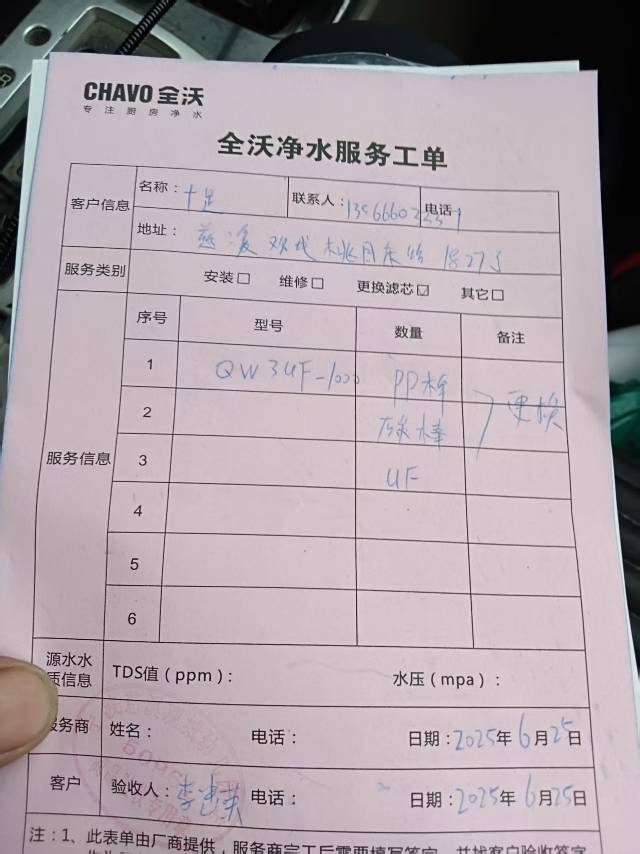 CHAVO 全沃
专注厨房净水
全沃净水服务工单
客户信息
名称：十足
联系人：
电话
地址：慈溪
服务类别
安装□ 维修□ 更换滤芯☑ 其它□
服务信息
序号 型号 数量 备注
1 QW3UF-1000 PP棒
2 碳棒 更换
3 UF
4
5
6
源水水质信息
TDS值（ppm）： 水压（mpa）：
服务商 姓名： 电话： 日期：2025年6月25日
客户 验收人： 电话： 日期：2025年6月25日
注：1、此表单由厂商提供，服务商完工后需要填写签字，并找客户验收签字